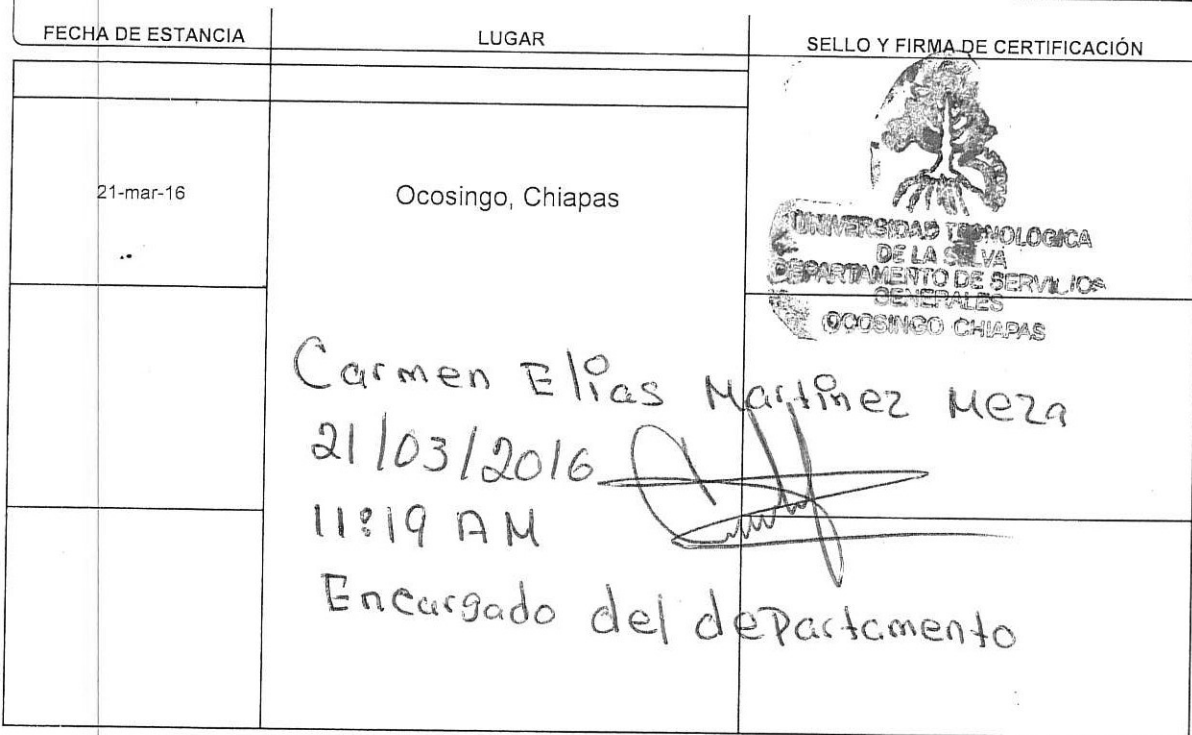 FECHA DE ESTANCIA LUGAR SELLO Y FIRMA DE CERTIFICACIÓN
21-mar-16 Ocosingo, Chiapas
UNIVERSIDAD TECNOLOGICA
DE LA SELVA
DEPARTAMENTO DE SERVICIOS
GENERALES
OCOSINGO CHIAPAS
Carmen Elias Martinez Meza
21/03/2016
11:19 AM
Encargado del departamento